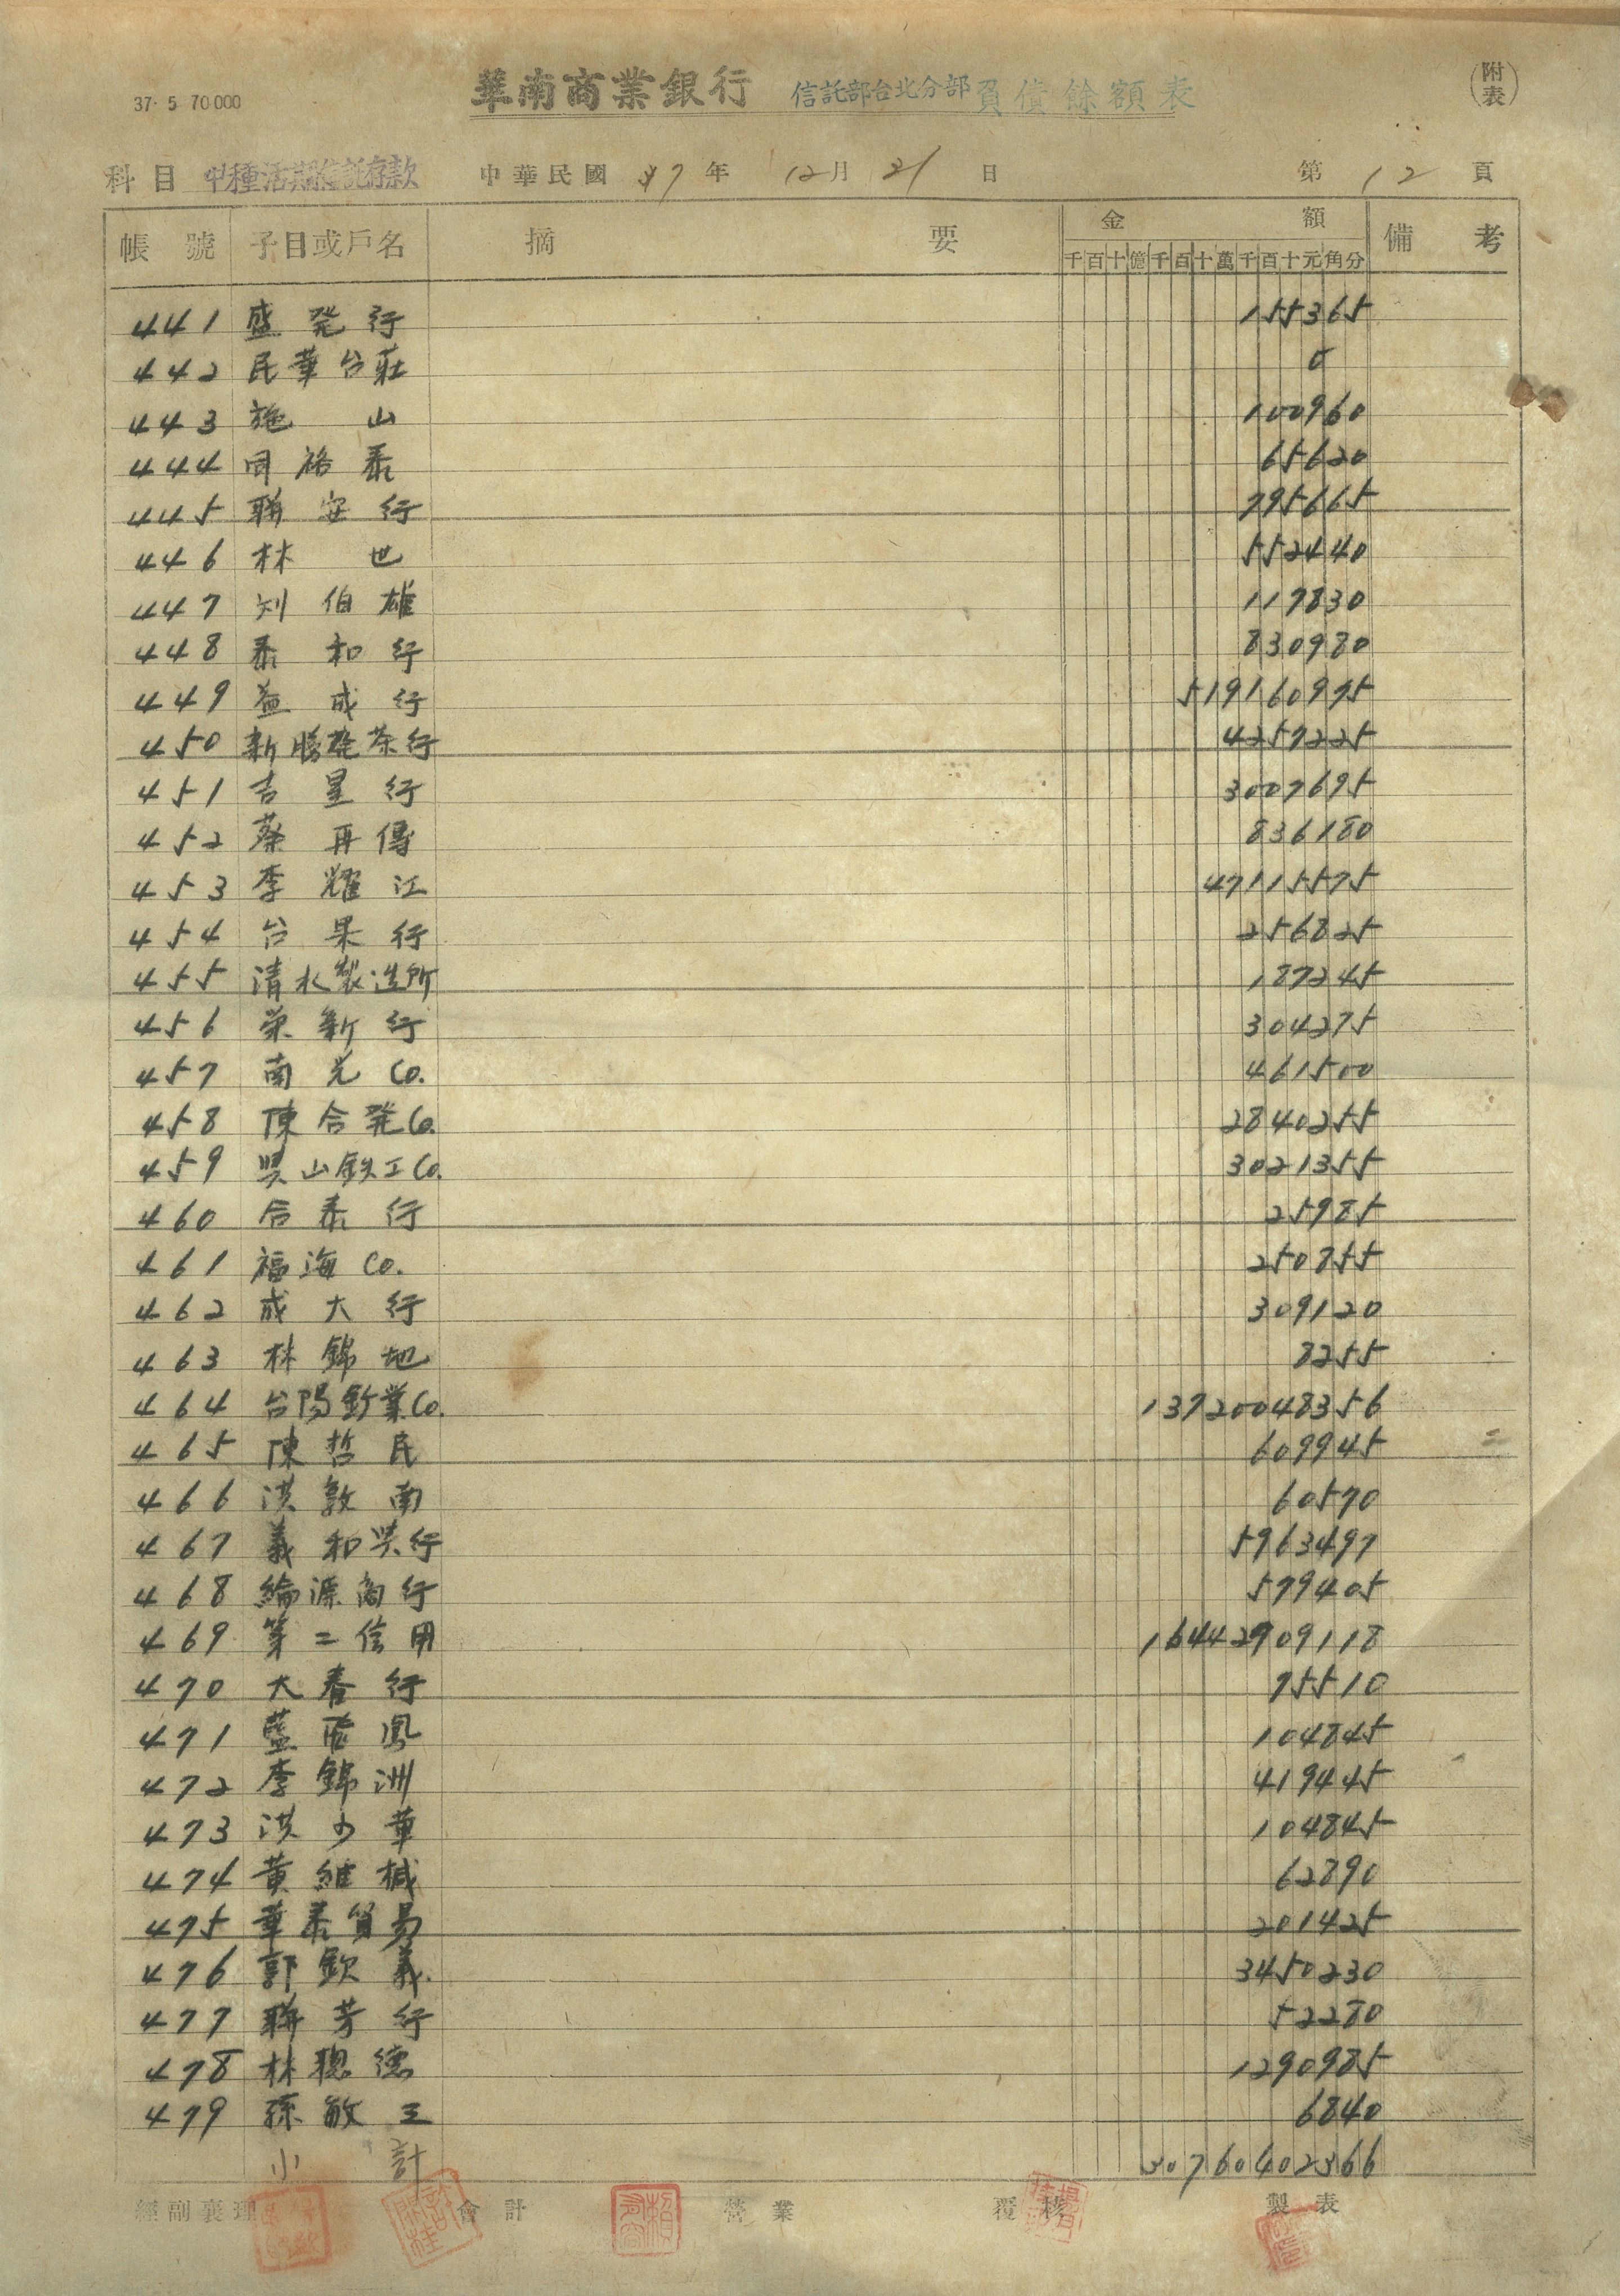 37·5 70000
華南商業銀行 信託部台北分部 負債餘額表 (附表)
科目 甲種活期信託存款 中華民國 37 年 12 月 31 日 第 12 頁
帳號 子目或戶名 摘要 金額 備考
千百十億千百十萬千百十元角分
441 盛発行 155365
442 民華台莊 5
443 施山 100960
444 同裕泰 65620
445 聯安行 795665
446 林世 552440
447 刘伯雄 117830
448 泰和行 830980
449 益成行 519160975
450 新勝隆茶行 4257225
451 吉星行 3007695
452 蔡再傳 836180
453 李耀江 47115575
454 台果行 256825
455 清水製造所 187245
456 栄新行 304275
457 南光Co. 461500
458 陳合発Co. 2840255
459 興山鉄工Co. 3021355
460 合泰行 25985
461 福海Co. 250755
462 成大行 309120
463 林錦地 8255
464 台陽鉱業Co. 13720048356
465 陳哲民 609945
466 洪敦南 60570
467 義和興行 5963497
468 綸源商行 579405
469 第二信用 16442909118
470 大春行 75510
471 藍 鳳 104845
472 李錦洲 419445
473 洪少華 104845
474 黃維槭 62890
475 華泰貿易 201425
476 郭欽義 3450230
477 聯芳行 52280
478 林聰德 1290985
479 孫敏三 6840
小計 30760402366
經副襄理 會計 營業 覆核 製表